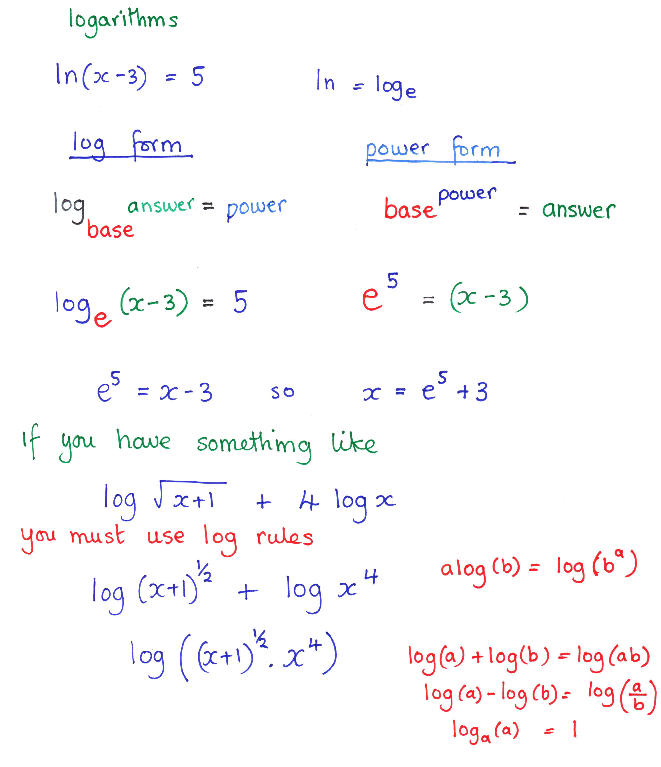 logarithms
ln(x-3) = 5    ln = logₑ
log form    power form
log_base answer = power    base^power = answer
logₑ (x-3) = 5    e⁵ = (x-3)
e⁵ = x-3    so    x = e⁵+3
If you have something like
log √(x+1) + 4 log x
you must use log rules
log (x+1)^½ + log x⁴    alog(b) = log(bᵃ)
log ((x+1)^½ . x⁴)    log(a)+log(b) = log(ab)
log(a)-log(b) = log(a/b)
logₐ(a) = 1